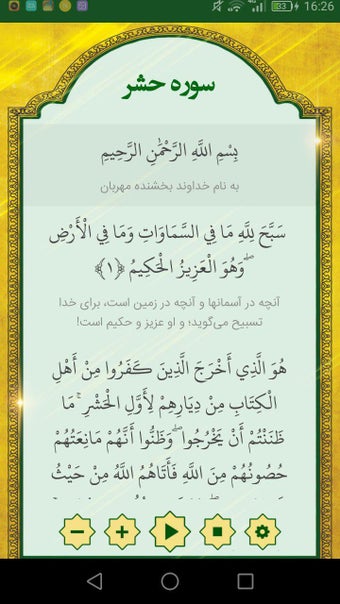 16:26
83
سوره حشر
بِسْمِ اللَّهِ الرَّحْمَٰنِ الرَّحِيمِ
به نام خداوند بخشنده مهربان
سَبَّحَ لِلَّهِ مَا فِي السَّمَاوَاتِ وَمَا فِي الْأَرْضِ
ۖ وَهُوَ الْعَزِيزُ الْحَكِيمُ ﴿١﴾
آنچه در آسمانها و آنچه در زمین است، برای خدا
تسبیح می‌گوید؛ و او عزیز و حکیم است!
هُوَ الَّذِي أَخْرَجَ الَّذِينَ كَفَرُوا مِنْ أَهْلِ
الْكِتَابِ مِنْ دِيَارِهِمْ لِأَوَّلِ الْحَشْرِ ۚ مَا
ظَنَنْتُمْ أَنْ يَخْرُجُوا ۖ وَظَنُّوا أَنَّهُمْ مَانِعَتُهُمْ
حُصُونُهُمْ مِنَ اللَّهِ فَأَتَاهُمُ اللَّهُ مِنْ حَيْثُ